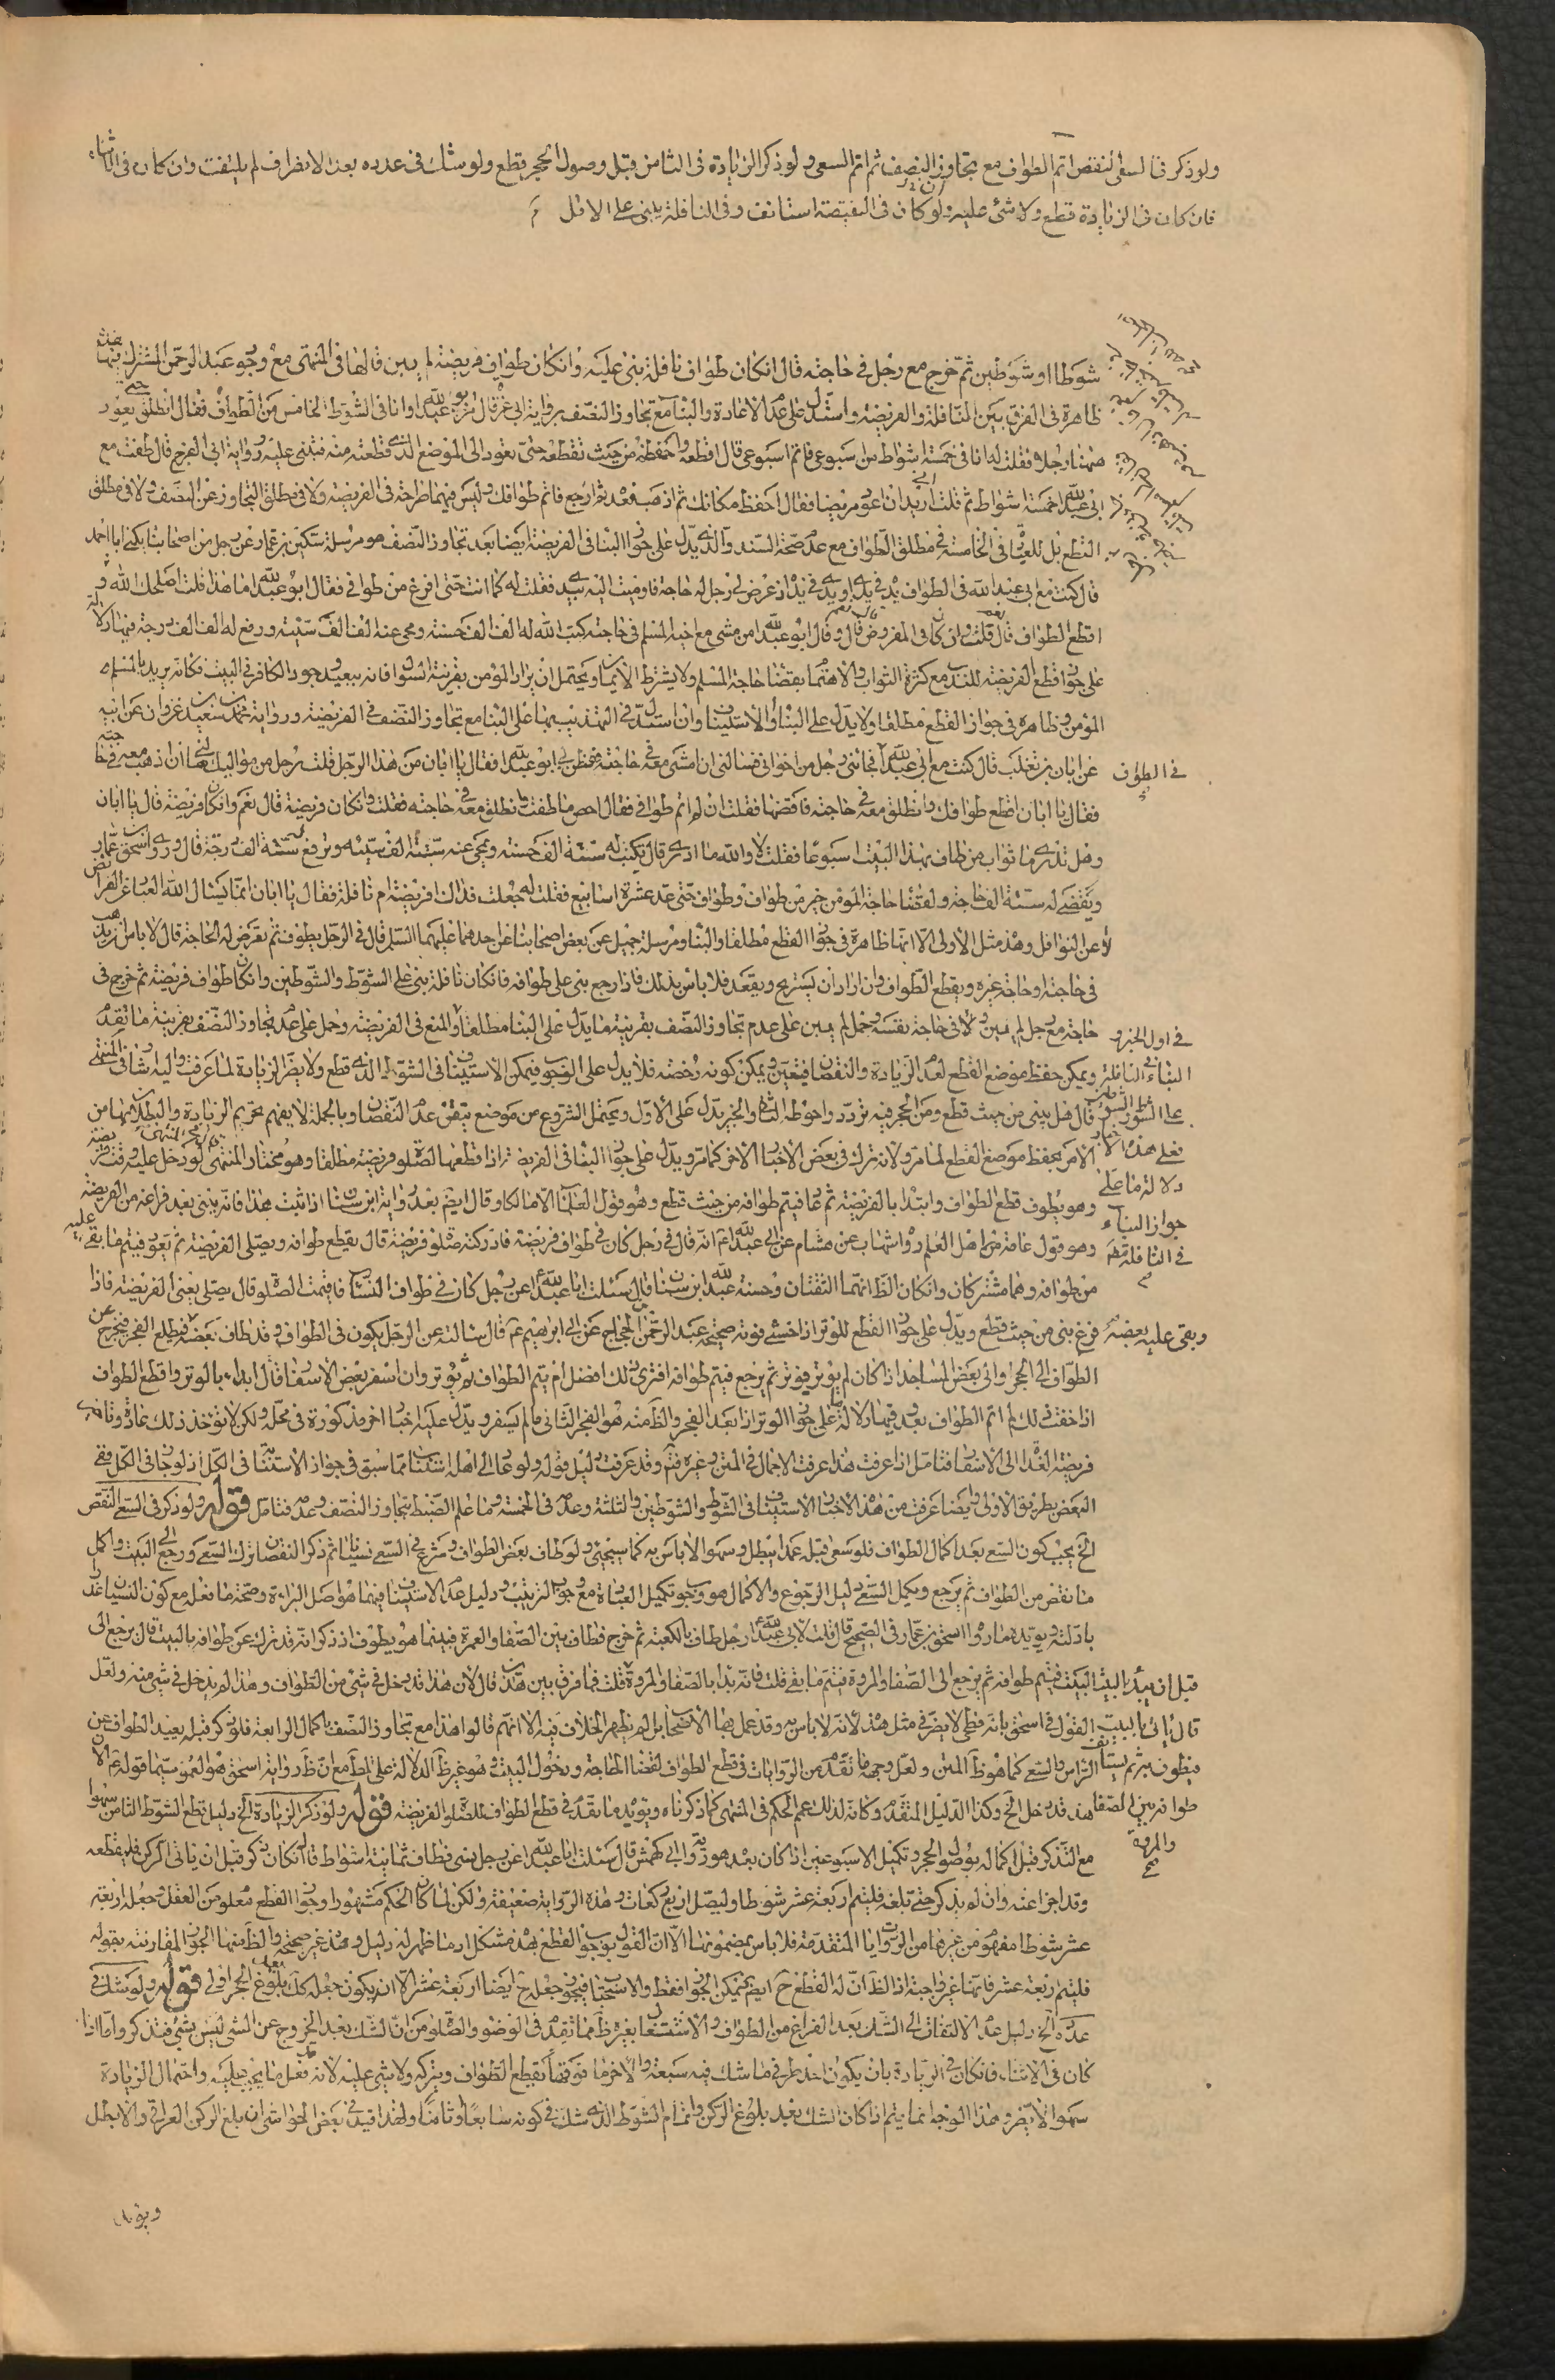 ولو ذكر في السعي النقص اتم الطواف مع تجاوز النصف ثم اتم السعي ولو ذكر الزيادة في الثامن قبل وصول الحجر قطع ولو شك في عدده بعد الانصراف لم يلتفت وان كان في الاثناء
فان كان في الزيادة قطع ولا شئ عليه ولو كان في النقيصة استانف وفي النافلة يبني على الاقل
شوطا او شوطين ثم خرج مع رجل في حاجته قال ان كان طواف نافلة بنى عليه وان كان طواف فريضة لم يبن قالها في المنتهى مع وجود عبد الرحمن المشترك فيها
ظاهرة في الفرق بين النافلة والفريضة واستدل على عدم الاعادة والبناء مع تجاوز النصف برواية ابي قال مر بي ابو عبد الله وانا في الشوط الخامس من الطواف فقال انطلق حتى نعود
ههنا رجلا فقلت له انا في خمسة اشواط من اسبوعي فاتم اسبوعي قال اقطعه واحفظه من حيث تقطعه حتى تعود الى الموضع الذي قطعته منه فتبني عليه ورواية ابي الفرج قال طفت مع
ابي عبد الله خمسة اشواط ثم قلت اني اريد ان اعود مريضا فقال احفظ مكانك ثم اذهب فعده ثم ارجع فاتم طوافك وليس فيهما صراحة في الفريضة ولا في مطلق التجاوز عن النصف ولا في مطلق
القطع بل للعيادة في الخامسة في مطلق الطواف مع عدم صحة السند والذي يدل على جواز البناء في الفريضة ايضا بعد تجاوز النصف هو مرسلة سكين بن عمار عن رجل من اصحابنا يكنى ابا احمد
قال كنت مع ابي عبد الله في الطواف يده في يدي او يدي في يده اذ عرض لي رجل له حاجة فاوميت اليه بيدي فقلت له كما انت حتى افرغ من طوافي فقال ابو عبد الله ما هذا قلت اصلحك الله
اقطع الطواف قال نعم قلت وان كان في المفروض قال نعم وقال ابو عبد الله من مشى مع اخيه المسلم في حاجته كتب الله له الف الف حسنة ومحى عنه الف الف سيئة ورفع له الف الف درجة فيها دلالة
على جواز قطع الفريضة للندب مع كثرة الثواب والاهتمام بقضاء حاجة المسلم ولا يشترط الايمان ويحتمل ان يراد المؤمن بقرينة الثواب فانه ببعيد وجود الكافر في البيت فكانه يريد بالمسلم
المؤمن وظاهرة في جواز القطع مطلقا ولا يدل على البناء والاستيناف وان استدل في التهذيب بها على البناء مع تجاوز النصف في الفريضة ورواية محمد بن سعيد بن غزوان عن ابيه
عن ابان بن تغلب قال كنت مع ابي عبد الله في الطواف فجائني رجل من اخواني فسالني ان امشي معه في حاجته ففطن بي ابو عبد الله فقال يا ابان من هذا الرجل قلت رجل من مواليك سالني ان اذهب معه في حاجته
فقال يا ابان اقطع طوافك وانطلق معه في حاجته فاقضها فقلت اني لم اتم طوافي فقال احص ما طفت وانطلق معه في حاجته فقلت وان كان فريضة قال نعم وان كان فريضة قال يا ابان
وهل تدري ما ثواب من طاف بهذا البيت اسبوعا فقلت لا والله ما ادري قال يكتب له ستة الف حسنة ويمحى عنه ستة الف سيئة وترفع له ستة الف درجة قال وروى اسحق بن عمار
ويقضى له ستة الف حاجة ولقضاء حاجة المؤمن خير من طواف وطواف حتى عد عشرة اسابيع فقلت له جعلت فداك افريضة ام نافلة فقال يا ابان انما يسئل الله العباد عن الفرائض
لا عن النوافل وهذه مثل الاولى الا انها ظاهرة في جواز القطع مطلقا والبناء ومرسلة جميل عن بعض اصحابنا عن احدهما عليهما السلم قال في الرجل يطوف ثم تعرض له الحاجة قال لا باس ان يذهب
في حاجته او حاجة غيره ويقطع الطواف وان اراد ان يستريح ويقعد فلا باس بذلك فاذا رجع بنى على طوافه فان كان نافلة بنى على الشوط والشوطين وان كان طواف فريضة ثم خرج في
حاجة مع رجل لم يبن ولا في حاجة نفسه وحمل لم يبن على عدم تجاوز النصف بقرينة ما يدل على البناء مطلقا والمنع في الفريضة وحمل على عدم تجاوز النصف بقرينة ما تقدم
ويمكن حفظ موضع القطع لعدم الزيادة والنقصان فيتعين ويمكن كونه رخصة فلا يدل على الوجوب فيمكن الاستيناف في الشوط الذي قطع ولا يضر الزيادة لما عرفت واليه اشار في المنتهى
قال هل يبني من حيث قطع ومن الحجر فيه تردد واحوطه الثاني والخبر يدل على الاول ويحتمل الشروع من موضع يتيقن عدم النقصان وبالجملة لا يفهم تحريم الزيادة والبطلان بها من
الامر بحفظ موضع القطع لما مر ولانه ترك في بعض الاخبار الاخر كما مر ويدل على جواز البناء في الفريضة اذا قطعها لصلوة فريضة مطلقا وهو مختار المنتهى لو دخل عليه وقت فريضة
وهو يطوف قطع الطواف وابتدا بالفريضة ثم عاد فيتم طوافه من حيث قطع وهو قول العلماء الا مالكا وقال ايضا بعد رواية ابن سنان اذا ثبت هذا فانه يبني بعد فراغه من الفريضة
وهو قول عامة من اهل العلم رواه شهاب عن هشام عن ابي عبد الله انه قال في رجل كان في طواف فريضة فادركته صلوة فريضة قال يقطع طوافه ويصلي الفريضة ثم يعود فيتم ما بقي عليه
من طوافه وهما مشتركان وان كان الظ انهما الثقتان وحسنة عبد الله بن سنان قال سئلت ابا عبد الله عن رجل كان في طواف النساء فاقيمت الصلوة قال يصلي يعني الفريضة فاذا
فرغ بنى من حيث قطع ويدل على جواز القطع للوتر اذا خشي فوته صحيحة عبد الرحمن بن الحجاج عن ابي ابرهيم قال سالته عن الرجل يكون في الطواف وقد طاف بعضه وبقي عليه بعضه فيطلع الفجر فيخرج من
الطواف الى الحجر والى بعض المساجد اذا كان لم يوتر فيوتر ثم يرجع فيتم طوافه افترى ذلك افضل ام يتم الطواف ثم يوتر وان اسفر بعض الاسفار قال ابدا بالوتر واقطع الطواف
اذا خفت ذلك ثم اتم الطواف بعد فيها دلالة على جواز الوتر اذا بعد الفجر والظ منه هو الفجر الثاني ما لم يسفر ويدل عليه اخبار اخر مذكورة في محله ولكن لا تؤخذ ذلك عادة
فريضة الغداة الى الاسفار فتامل اذا عرفت هذا عرفت الاجمال في المتن وغيره وقد عرفت دليل قوله ولو عاد الى اهله استناب مما سبق في جواز الاستنابة في الكل اذ لو جاز في الكل ففي
البعض بطريق الاولى وايضا عرفت من هذه الاخبار الاستيناف في الشوط والشوطين والثلثة وعدمه في الخمسة وما علم الضبط بتجاوز النصف وعدمه فتامل قوله ولو ذكر في السعي النقص
الخ يجب كون السعي بعد اكمال الطواف فلو سعى قبله عمدا يبطل وسهوا لا باس به كما سيجئ ولو طاف بعض الطواف وشرع في السعي نسيانا ثم ذكر النقصان ترك السعي ورجع الى البيت واكمل
ما نقص من الطواف ثم يرجع ويكمل السعي دليل الرجوع والاكمال هو وجوب تكميل العبادة مع وجوب الترتيب ودليل عدم الاستيناف فيهما هو اصل البراءة وصحة ما فعل مع كون النسيان عذرا
بادلته ويؤيده ما رواه اسحق بن عمار في الصحيح قال قلت لابي عبد الله رجل طاف بالكعبة ثم خرج فطاف بين الصفا والعمرة فبينما هو يطوف اذ ذكر انه قد ترك من طوافه بالبيت قال يرجع الى
البيت فيتم طوافه ثم يرجع الى الصفا والمروة فيتم ما بقي قلت فانه بدا بالصفا والمروة قبل ان يبدا بالبيت فقال ياتي بالبيت فيطوف به ثم يستانف طوافه بين الصفا والمروة قلت فما فرق بين هذين قال لان هذا قد دخل في شئ من الطواف وهذا لم يدخل في شئ منه ولعل
القول في اسحق بانه فطحي لا يضر في مثل هذه لانه لا باس به وقد عمل بها الاصحاب بل لم يظهر الخلاف فيه الا انهم قالوا هذا مع تجاوز النصف باكمال الرابعة فلو ذكر قبله يعيد الطواف من
الراس والسعي كما هو ظ المتن ولعل وجهه ما تقدم من الروايات في قطع الطواف لقضاء الحاجة ودخول البيت وهو غير ظ الدلالة على المط مع ان ظ رواية اسحق هو العموم سيما قوله لان
هذا قد دخل الخ وكذا الدليل المتقدم وكانه لذلك عمم الحكم في المنتهى كما ذكرناه ويؤيده ما تقدم في قطع الطواف للصلوة الفريضة قوله ولو ذكر الزيادة الخ دليل قطع الشوط الثامن سهوا
مع التذكر قبل اكماله بوصول الحجر وتكميل الاسبوعين اذا كان بعده هو رواية ابي كهمش قال سئلت ابا عبد الله عن رجل نسي فطاف ثمانية اشواط قال ان كان ذكر قبل ان ياتي الركن فليقطعه
وقد اجزا عنه وان لم يذكر حتى بلغه فليتم اربعة عشر شوطا وليصل اربع ركعات وهذه الرواية ضعيفة ولكن لما كان الحكم مشهورا وجواز القطع معلوم من العقل وجعله اربعة
عشر شوطا مفهوم من غيرها من الروايات المتقدمة فلا باس بمضمونها الا ان القول بوجوب القطع بهذه مشكل اذ ما ظهر له دليل وهذه غير صحيحة والظ منها الجواز لمقارنته بقوله
فليتم اربعة عشر فانها غير واجبة اذ الظ ان له القطع ح ايضا فيمكن الجواز فقط والاستحباب فيجوز جعله ح ايضا اربعة عشر الا ان يكون جعله كك بعد بلوغ الحجر اولى قوله ولو شك في
عدده الخ دليل عدم الالتفات الى الشك بعد الفراغ من الطواف والاشتغال بغيره ظ مما تقدم في الوضوء والصلوة من ان الشك بعد الخروج عن الشئ ليس بشئ فتذكر واما اذا
كان في الاثناء فان كان في الزيادة بان يكون احد طرفي ما شك فيه سبعة والاخر ما فوقها يقطع الطواف ويتركه ولا شئ عليه لانه فعل ما يجب عليه واحتمال الزيادة
سهوا لا يضر وهذا الوجه انما يتم اذا كان الشك بعد بلوغ الركن واتمام الشوط الذي شك في كونه سابعا او ثامنا ولهذا قيده في بعض الحواشي ان بلغ الركن العراقي والا بطل